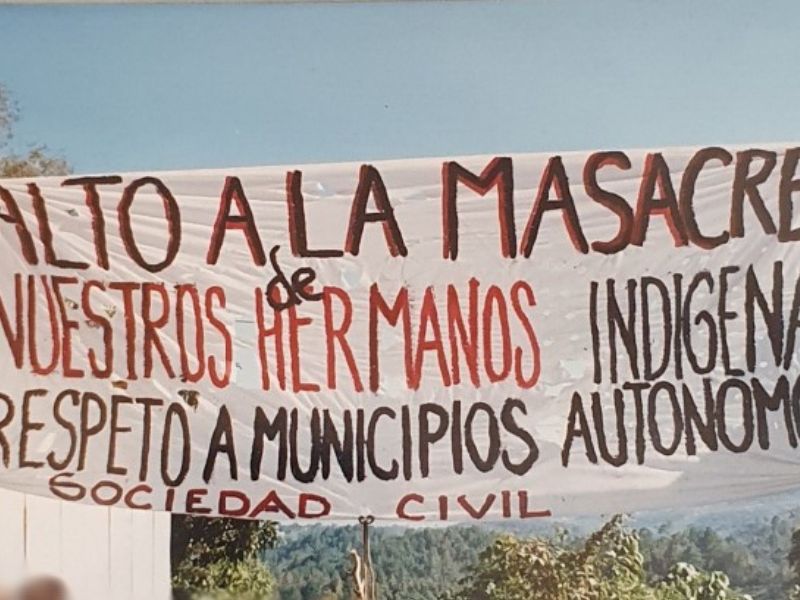 ALTO A LA MASACRE
de
NUESTROS HERMANOS INDIGENA
RESPETO A MUNICIPIOS AUTONOMO
SOCIEDAD CIVIL